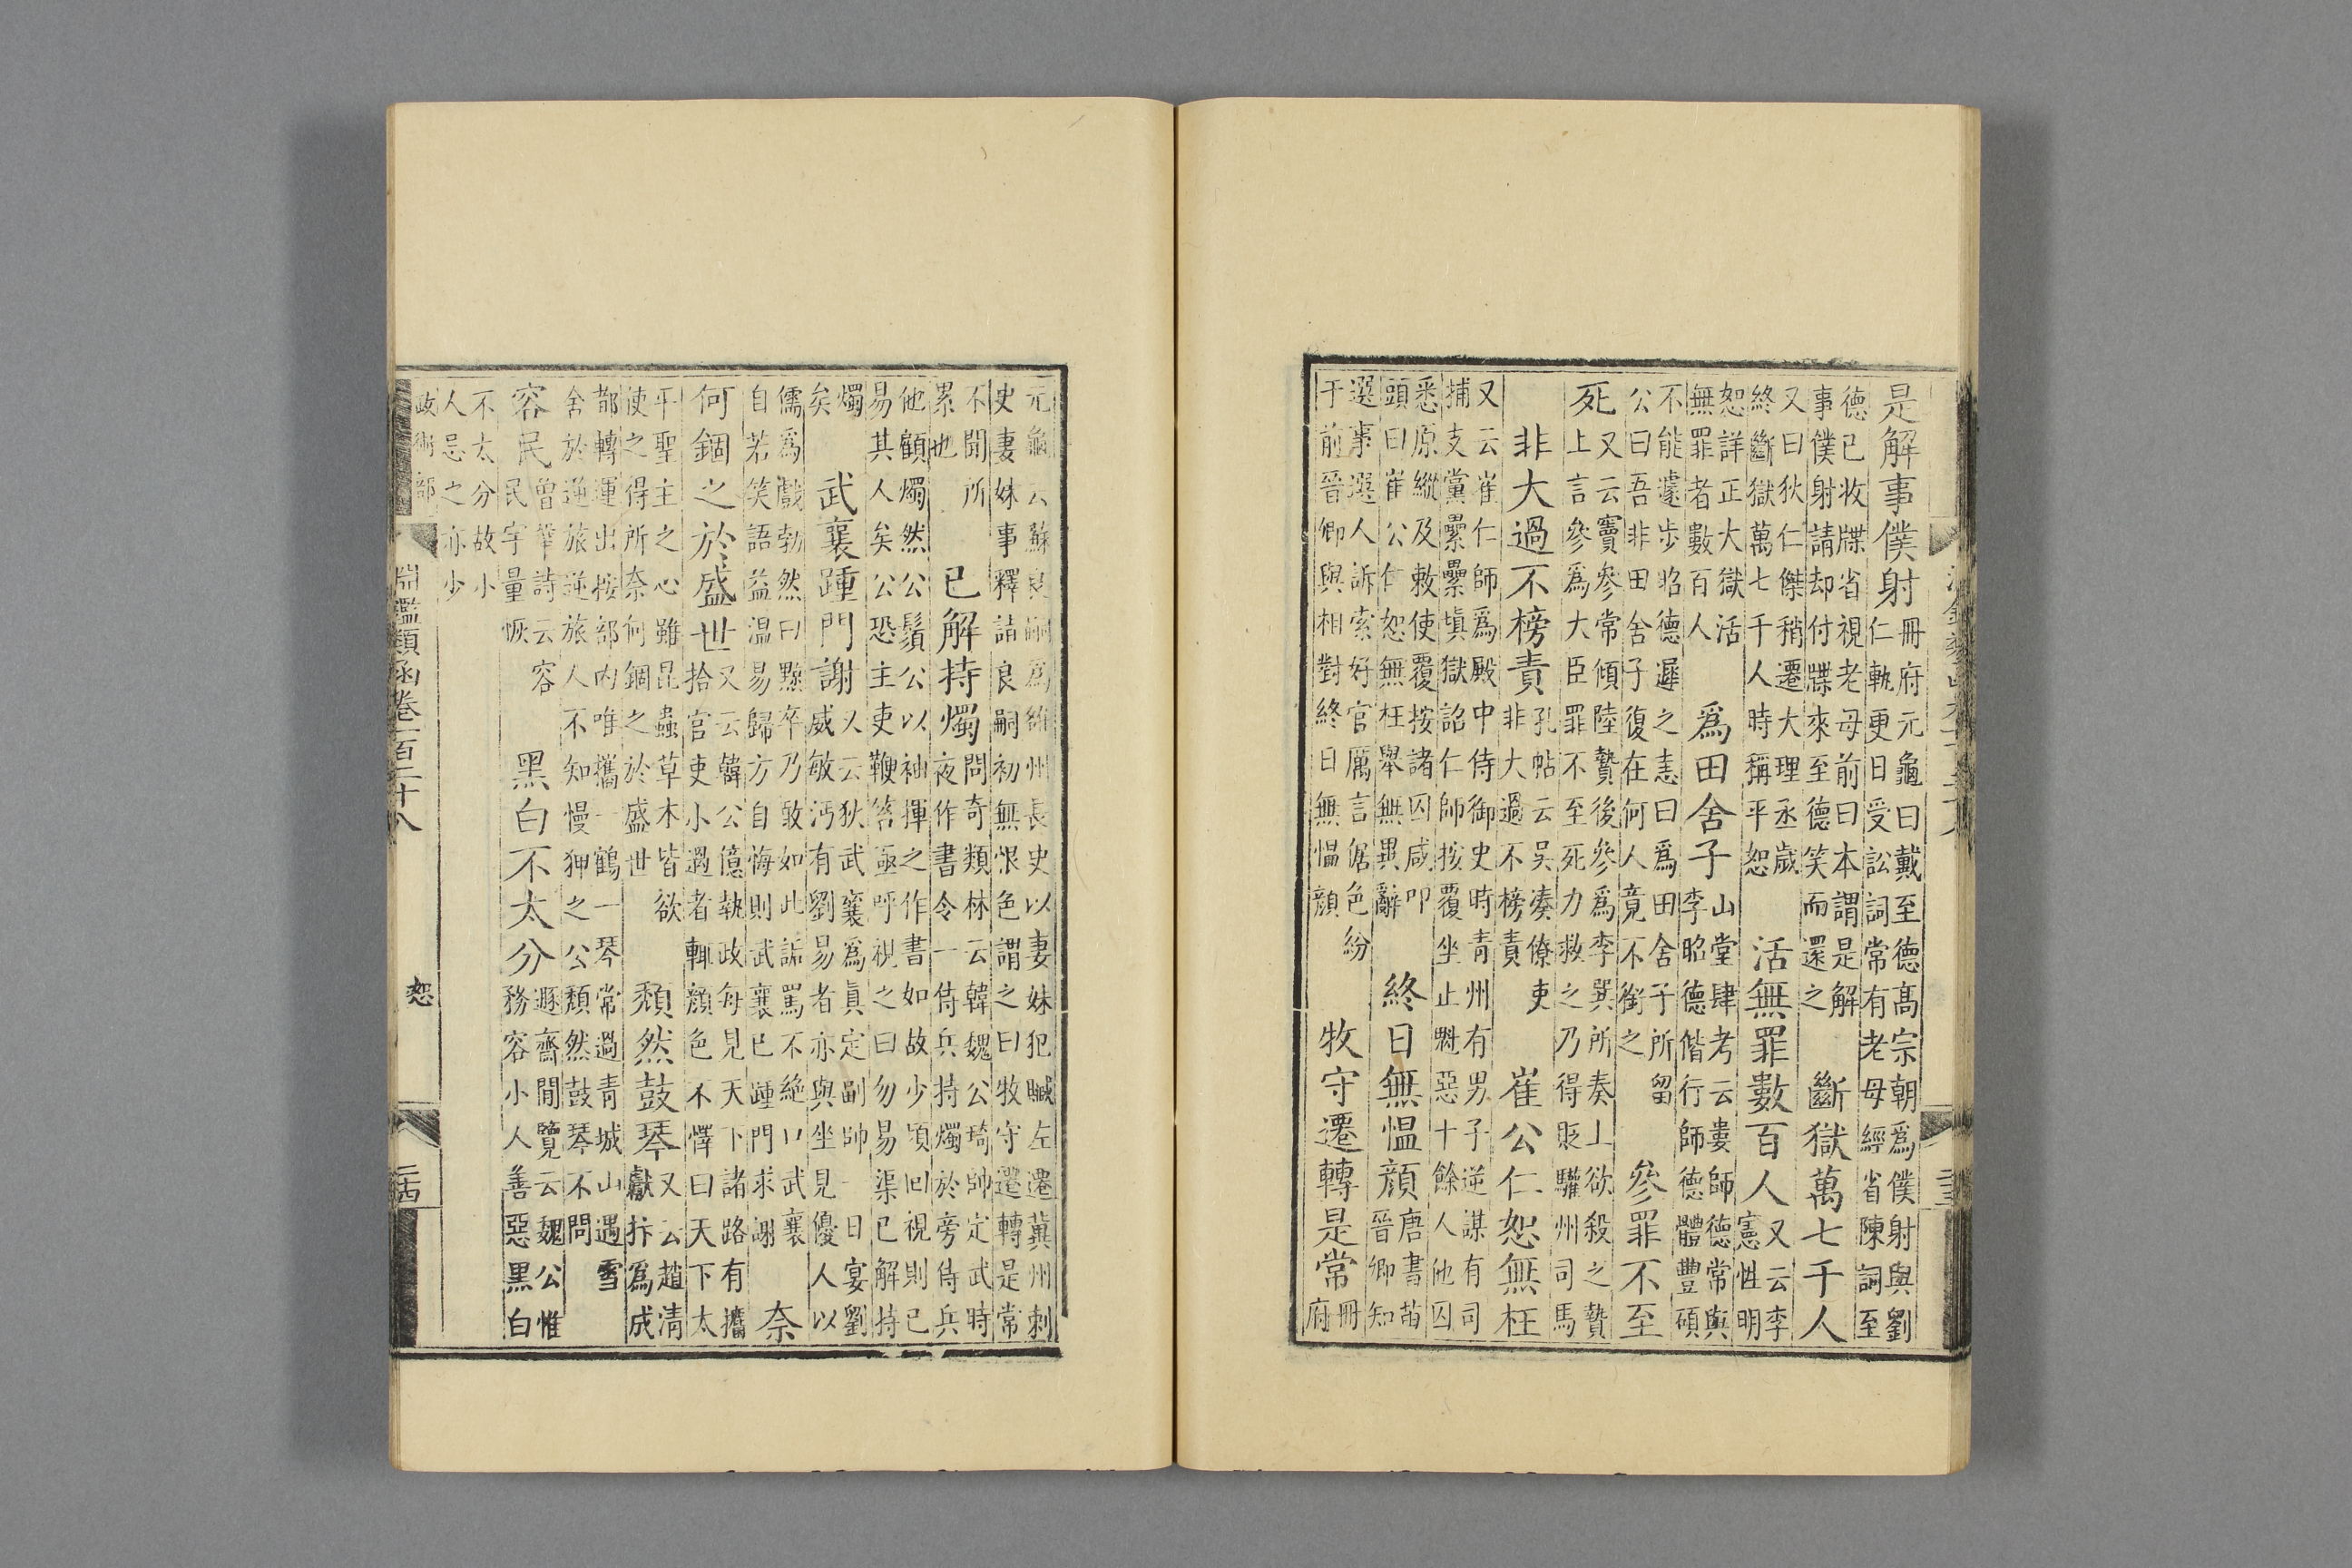 是解事僕射冊府元龜曰戴至德高宗朝爲僕射與劉仁軌更日受訟詞常有老母經省陳詞至
德已收牒省視老母前曰本謂是解事僕射請却付牒來至德笑而還之　斷獄萬七千人
又曰狄仁傑稍遷大理丞歲終斷獄萬七千人時稱平恕　活無罪數百人又云李憲性明
恕詳正大獄活無罪者數百人　爲田舍子山堂肆考云婁師德常與李昭德偕行師德體豐碩
不能遽步昭德遲之恚曰爲田舍子所留公曰吾非田舍子復在何人竟不銜之　參罪不至
死又云竇參常傾陸贄後參爲李巽所奏上欲殺之贄上言參爲大臣罪不至死力救之乃得貶驩州司馬
非大過不榜責孔帖云吳湊僚吏非大過不榜責　崔公仁恕無枉
又云崔仁師爲殿中侍御史時青州有男子逆謀有司捕支黨纍纍填獄詔仁師按覆坐止魁惡十餘人他囚
悉原縱及敕使覆按諸囚咸叩頭曰崔公仁恕無枉舉無異辭　終日無慍顏唐書苗晉卿知
選事選人訴索好官厲言倨色紛于前晉卿與相對終日無慍顏　牧守遷轉是常冊府
元龜云蘇良嗣爲雍州長史以妻妹犯贓左遷冀州刺史妻妹事釋詣良嗣初無恨色謂之曰牧守遷轉是常
不聞所累也　已解持燭問奇類林云韓魏公琦帥定武時夜作書令一侍兵持燭於旁侍兵
他顧燭然公鬚公以袖揮之作書如故少頃回視則已易其人矣公恐主吏鞭笞亟呼視之曰勿易渠已解持
燭矣　武襄踵門謝又云狄武襄爲真定副帥一日宴劉威敏沔有劉易者亦與坐見優人以
儒爲戲勃然曰黥卒乃敢如此詬罵不絕口武襄自若笑語益温易歸方自悔則武襄已踵門求謝　奈
何錮之於盛世又云韓公億執政每見天下諸路有攟拾官吏小過者輒顏色不懌曰天下太
平聖主之心雖昆蟲草木皆欲使之得所奈何錮之於盛世　頹然鼓琴又云趙清獻抃爲成
都轉運出按部内唯攜一鶴一琴常過青城山遇雪舍於逆旅逆旅人不知慢狎之公頹然鼓琴不問
容民曾肇詩云容民宇量恢　黑白不太分遯齋閒覽云魏公惟務容小人善惡黑白
不太分故小人忌之亦少
政術部　淵鑑類函卷一百二十八　恕　二十四